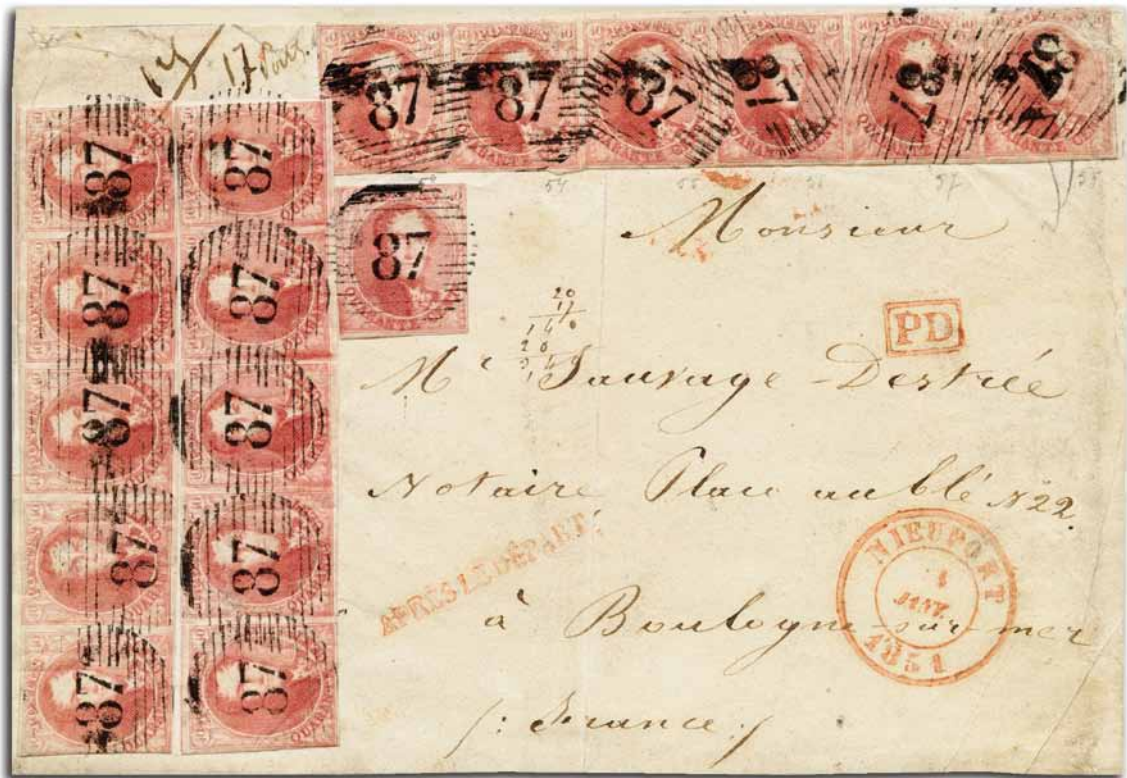 17 17 Port.
87 87 87 87 87 87
87 87
87
87 87
87 87
87 87
87 87
54 55 56 57 58
Monsieur
20
17
140
20
PD
Mr Sauvage-Destrée
Notaire Place au blé N 22.
APRES LE DÉPART
NIEUPORT
1
JANV.
1851
à Boulogne-sur-mer
/: France :/